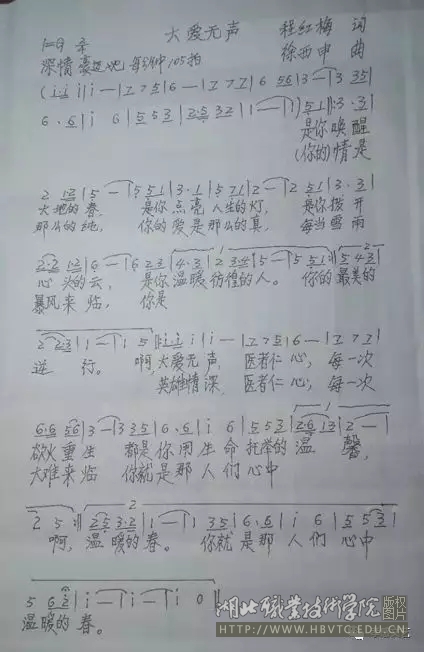 大爱无声 程红梅 词
深情 豪迈地 每分钟105拍 徐西申 曲
(i·i i|i—|7 7 5|6—|7 7 7|6 56|3—|3 35|
6·6|i 6|5 5 3|2·5 32|1—|1) 51|:3·3|
是你唤醒
(你的)情是
2 12|5—|5 51|3·1|5 71|2—|2 51|3·3|
大地的春, 是你点亮人生的灯, 是你拨开
那么的纯, 你的爱是那么的真, 每当雪雨
2·2 12|6—|6 23|4·3|2 34|5—|5 51:|5 43|
心头的云, 是你温暖彷徨的人。 你的最美的
暴风来临, 你是
2 23|1—|1 5|:i·i i|i—|7 7 5|6—|7 7 7|
逆行。 啊,大爱无声, 医者仁心, 每一次
英雄情深, 医者仁心, 每一次
6·6 56|3—|3 35|6·6|i 6|5 5 3|2·6 13|2—|
欲火重生 都是你用生命托举的温馨,
大难来临 你就是那人们心中
2 5:|2·5 3·2|1—|1 35|6·6|i 6|5 5 3|
啊, 温暖的春。 你就是那人们心中
5 62|i—|i—|i 0|
温暖的春。
湖北职业技术学院 版权图片
HTTP://WWW.HBVTC.EDU.CN